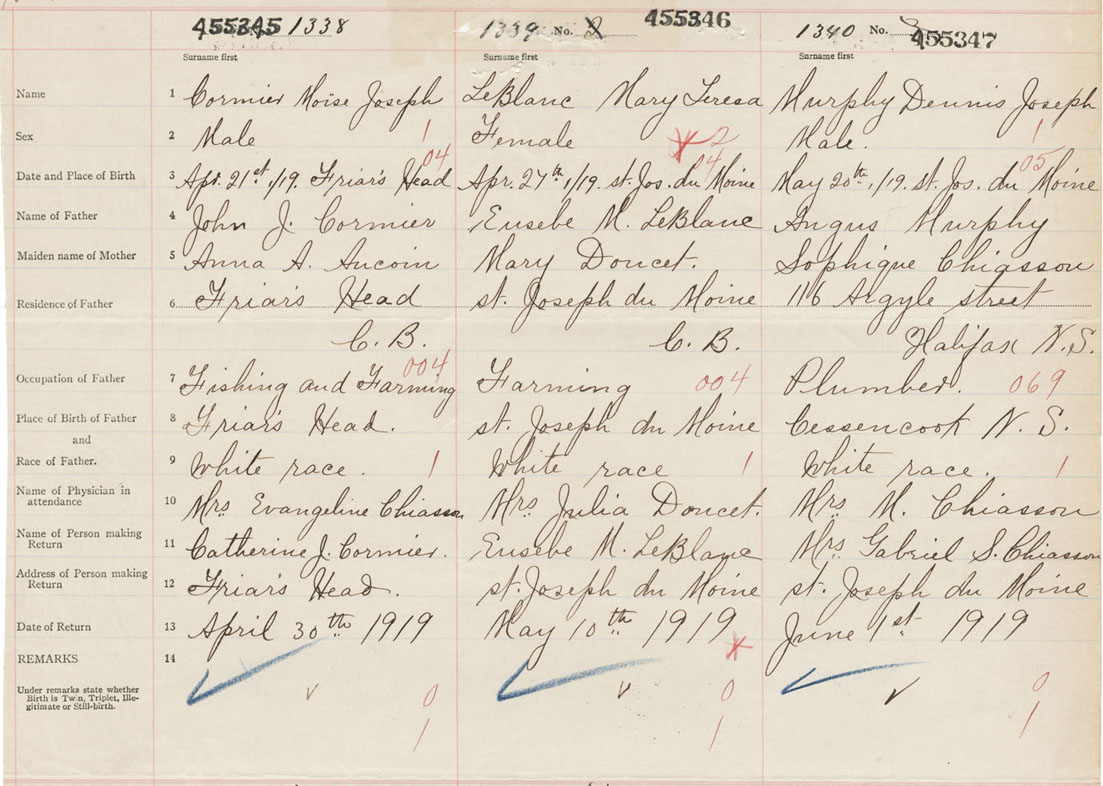 455345 1338
1339 No. 2 455346
1340 No. 455347
Surname first Surname first Surname first
Name 1 Cormier Moïse Joseph LeBlanc Mary Teresa Murphy Dennis Joseph
Sex 2 Male 1 Female 2 Male. 1
04 04 05
Date and Place of Birth 3 Apr. 21st 1/19. Friar's Head Apr. 27th 1/19. St. Jos. du Moine May 20th 1/19. St. Jos. du Moine
Name of Father 4 John J. Cormier Eusebe M. LeBlanc Angus Murphy
Maiden name of Mother 5 Anna A. Aucoin Mary Doucet. Sophique Chiasson
Residence of Father 6 Friar's Head St. Joseph du Moine 116 Argyle street
C. B. C. B. Halifax N.S.
Occupation of Father 7 Fishing and Farming 004 Farming 004 Plumber. 069
Place of Birth of Father 8 Friar's Head. St. Joseph du Moine Cessencook N. S.
and
Race of Father. 9 White race. 1 White race 1 White race. 1
Name of Physician in
attendance 10 Mrs. Evangeline Chiasson Mrs. Julia Doucet. Mrs. M. Chiasson
Name of Person making
Return 11 Catherine J. Cormier. Eusebe M. LeBlanc Mrs. Gabriel S. Chiasson
Address of Person making
Return 12 Friar's Head. St. Joseph du Moine St. Joseph du Moine
Date of Return 13 April 30th 1919 May 10th 1919 June 1st 1919
REMARKS 14
Under remarks state whether
Birth is Twin, Triplet, Ille-
gitimate or Still-birth.
0 0 0
1 1 1